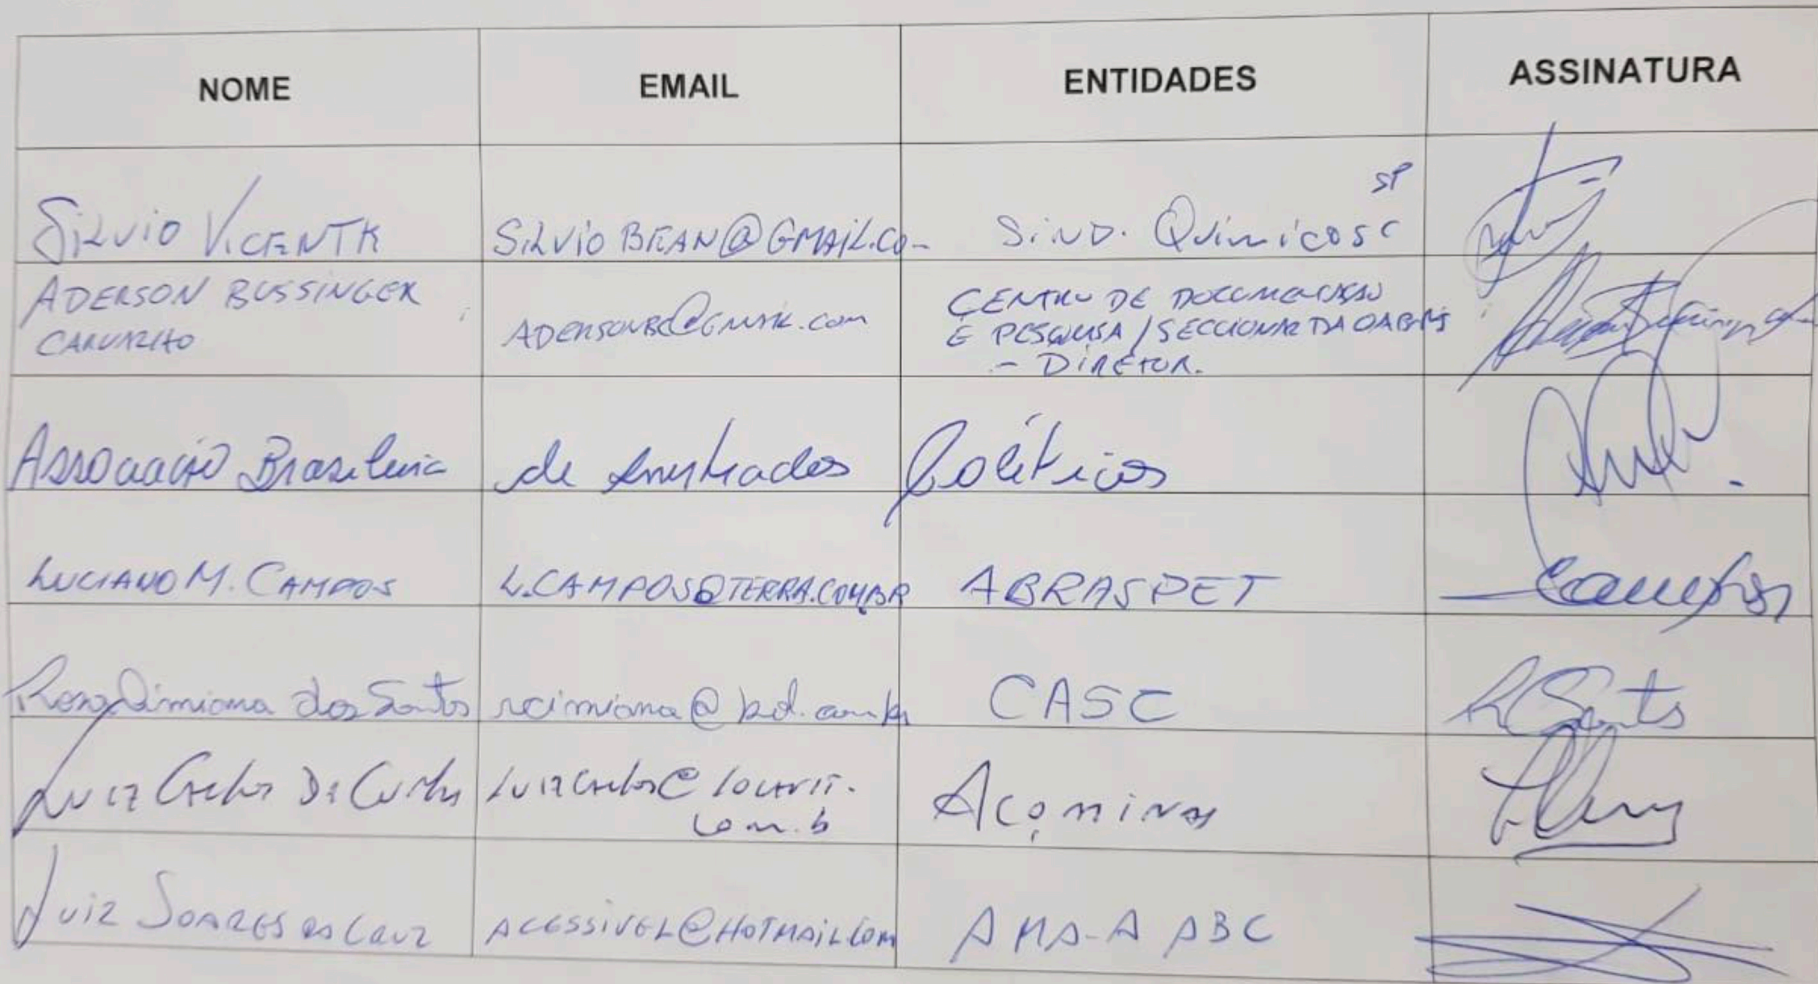 NOME EMAIL ENTIDADES ASSINATURA
SP
SiLViO VICENTE SiLViOBEAN@GMAiL.CO- SiND. QuímicosC
ADERSON BUSSINGER CENTRO DE DOCUMENTAÇÃO
CARVALHO ADERSONBC@GMAIL.com E PESQUISA / SECCIONAL DA OAB-RJ
- DIRETOR.
Associação Brasileira de Anistiados Políticos
LUCIANO M. CAMPOS L.CAMPOS@TERRA.COM.BR ABRASPET Campos
Rosa Cimiana dos Santos rcimiana@ CASC RSantos
Luiz Carlos De LuizCarlos@ Açominas
com.b
Luiz SOARES da Cruz ACESSiVEL@HOTMAiL.COM AMA-A ABC